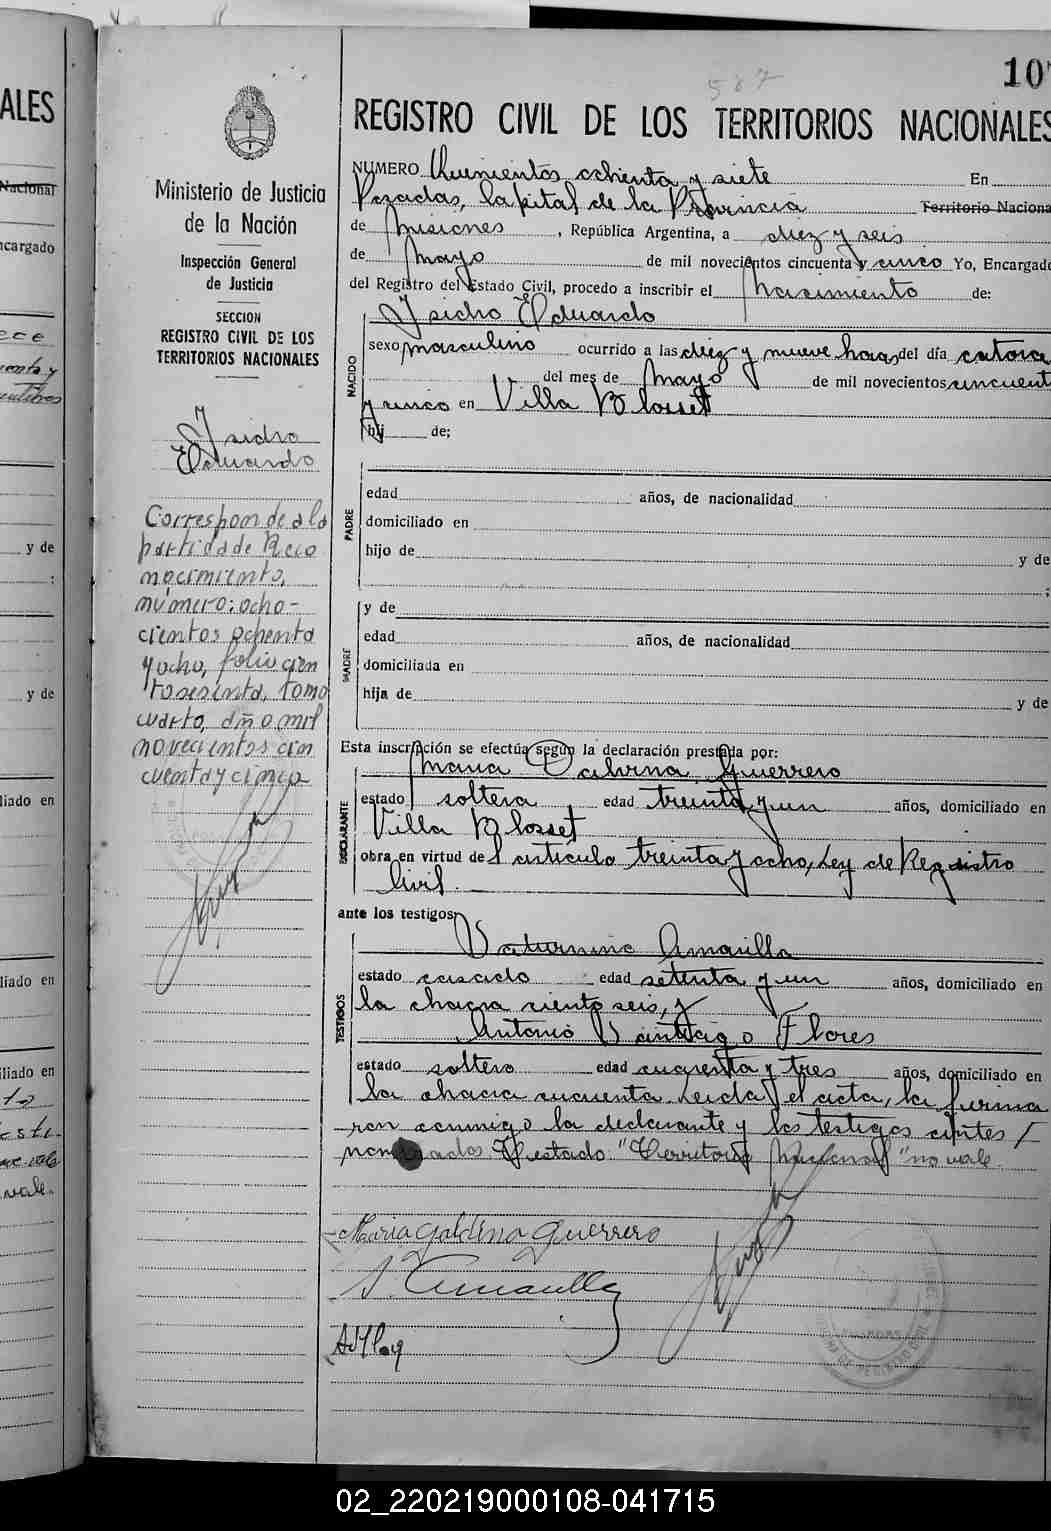 587
10
REGISTRO CIVIL DE LOS TERRITORIOS NACIONALES
Ministerio de Justicia
de la Nación
Inspección General
de Justicia
SECCION
REGISTRO CIVIL DE LOS
TERRITORIOS NACIONALES
Isidro
Eduardo
Correspon de a la
partida de Reco
nocimiento,
número: ocho-
cientos ochenta
y ocho, folio cien
to sesenta, tomo
cuarto, año mil
novecientos cin
cuenta y cinco
NUMERO Quinientos ochenta y siete En
Posadas, Capital de la Provincia Territorio Naciona
de Misiones, República Argentina, a diez y seis
de Mayo de mil novecientos cincuenta y cinco Yo, Encargado
del Registro del Estado Civil, procedo a inscribir el Nacimiento de:
NACIDO
Isidro Eduardo
sexo masculino ocurrido a las diez y nueve horas del día catorce
del mes de Mayo de mil novecientos cincuent
y cinco en Villa Blosset
hij de;
PADRE
edad años, de nacionalidad
domiciliado en
hijo de y de
;
MADRE
y de
edad años, de nacionalidad
domiciliada en
hija de y de
Esta inscripción se efectúa según la declaración prestada por:
DECLARANTE
Maria Galvina Guerrero
estado soltera edad treinta y un años, domiciliado en
Villa Blosset
obra en virtud del artículo treinta y ocho, Ley de Registro
Civil.
ante los testigos
TESTIGOS
Saturnino Amarilla
estado casado edad setenta y un años, domiciliado en
la chacra ciento seis, y
Antonio Santiago Flores
estado soltero edad cuarenta y tres años, domiciliado en
la chacra cincuenta. Leida el acta, la firma
ron conmigo la declarante y los testigos antes
nombrados Testado: "Territorio Nacional" no vale.
Maria Galdina Guerrero
S. Amarilla
ALES
Nacional
ncargado
y de
:
y de
liado en
liado en
liado en
vale.
02_220219000108-041715